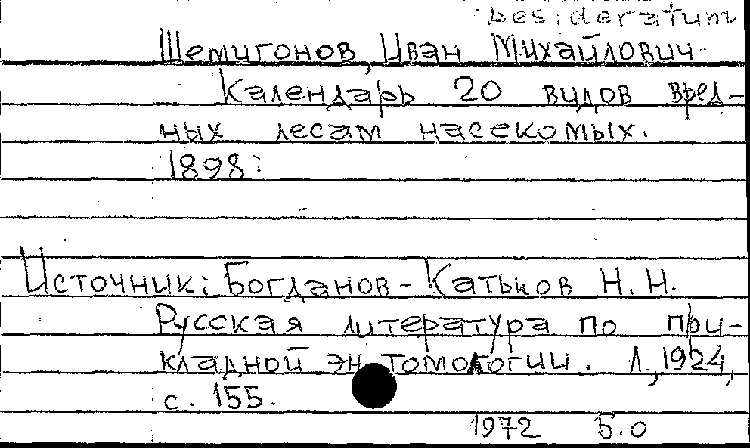 desideratum
Шемигонов, Иван Михайлович
Календарь 20 видов вред-
ных лесам насекомых.
1898?
Источник: Богданов-Катьков Н.Н.
Русская литература по при-
кладной энтомологии. Л., 1924,
с. 155.
1972 Б.О